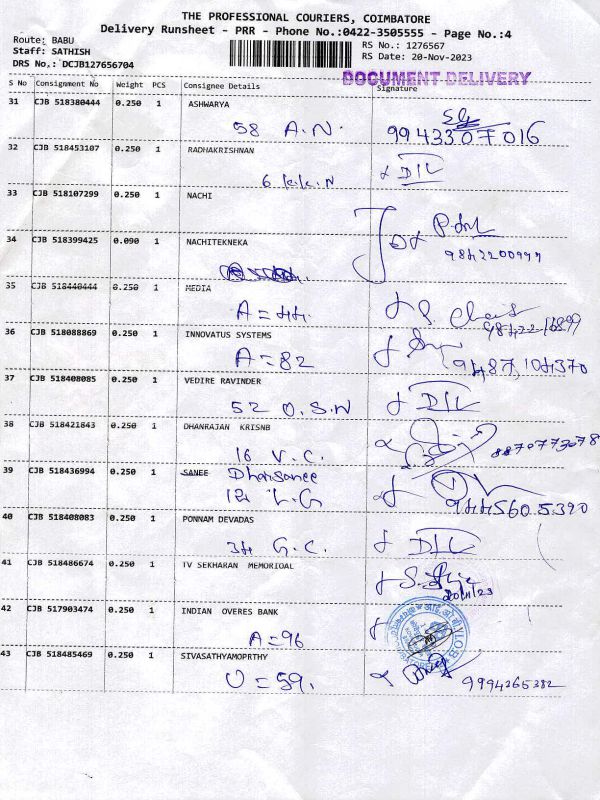 THE PROFESSIONAL COURIERS, COIMBATORE
Delivery Runsheet - PRR - Phone No.:0422-3505555 - Page No.:4
Route: BABU
Staff: SATHISH
DRS No.: DCJB127656704
RS No.: 1276567
RS Date: 20-Nov-2023
DOCUMENT DELIVERY
S No Consignment No Weight PCS Consignee Details Signature
31 CJB 518380444 0.250 1 ASHWARYA
58 A.N. 9943307016
32 CJB 518453107 0.250 1 RADHAKRISHNAN
6 K.K.N D/L
33 CJB 518107299 0.250 1 NACHI
34 CJB 518399425 0.090 1 NACHITEKNEKA
9842200949
35 CJB 518440444 0.250 1 MEDIA
A = 44.
98422-16899
36 CJB 518088869 0.250 1 INNOVATUS SYSTEMS
A = 82 9487104370
37 CJB 518408085 0.250 1 VEDIRE RAVINDER
52 O.S.N D/L
38 CJB 518421843 0.250 1 DHANRAJAN KRISNB
16 V.C. 8870773078
39 CJB 518436994 0.250 1 SANEE Dhansanee
124 L.G 9445605390
40 CJB 518408083 0.250 1 PONNAM DEVADAS
34 G.C. D/L
41 CJB 518486674 0.250 1 TV SEKHARAN MEMORIOAL
20/11/23
42 CJB 517903474 0.250 1 INDIAN OVERES BANK
A = 96
43 CJB 518485469 0.250 1 SIVASATHYAMOPRTHY
O = 59. 9994265382